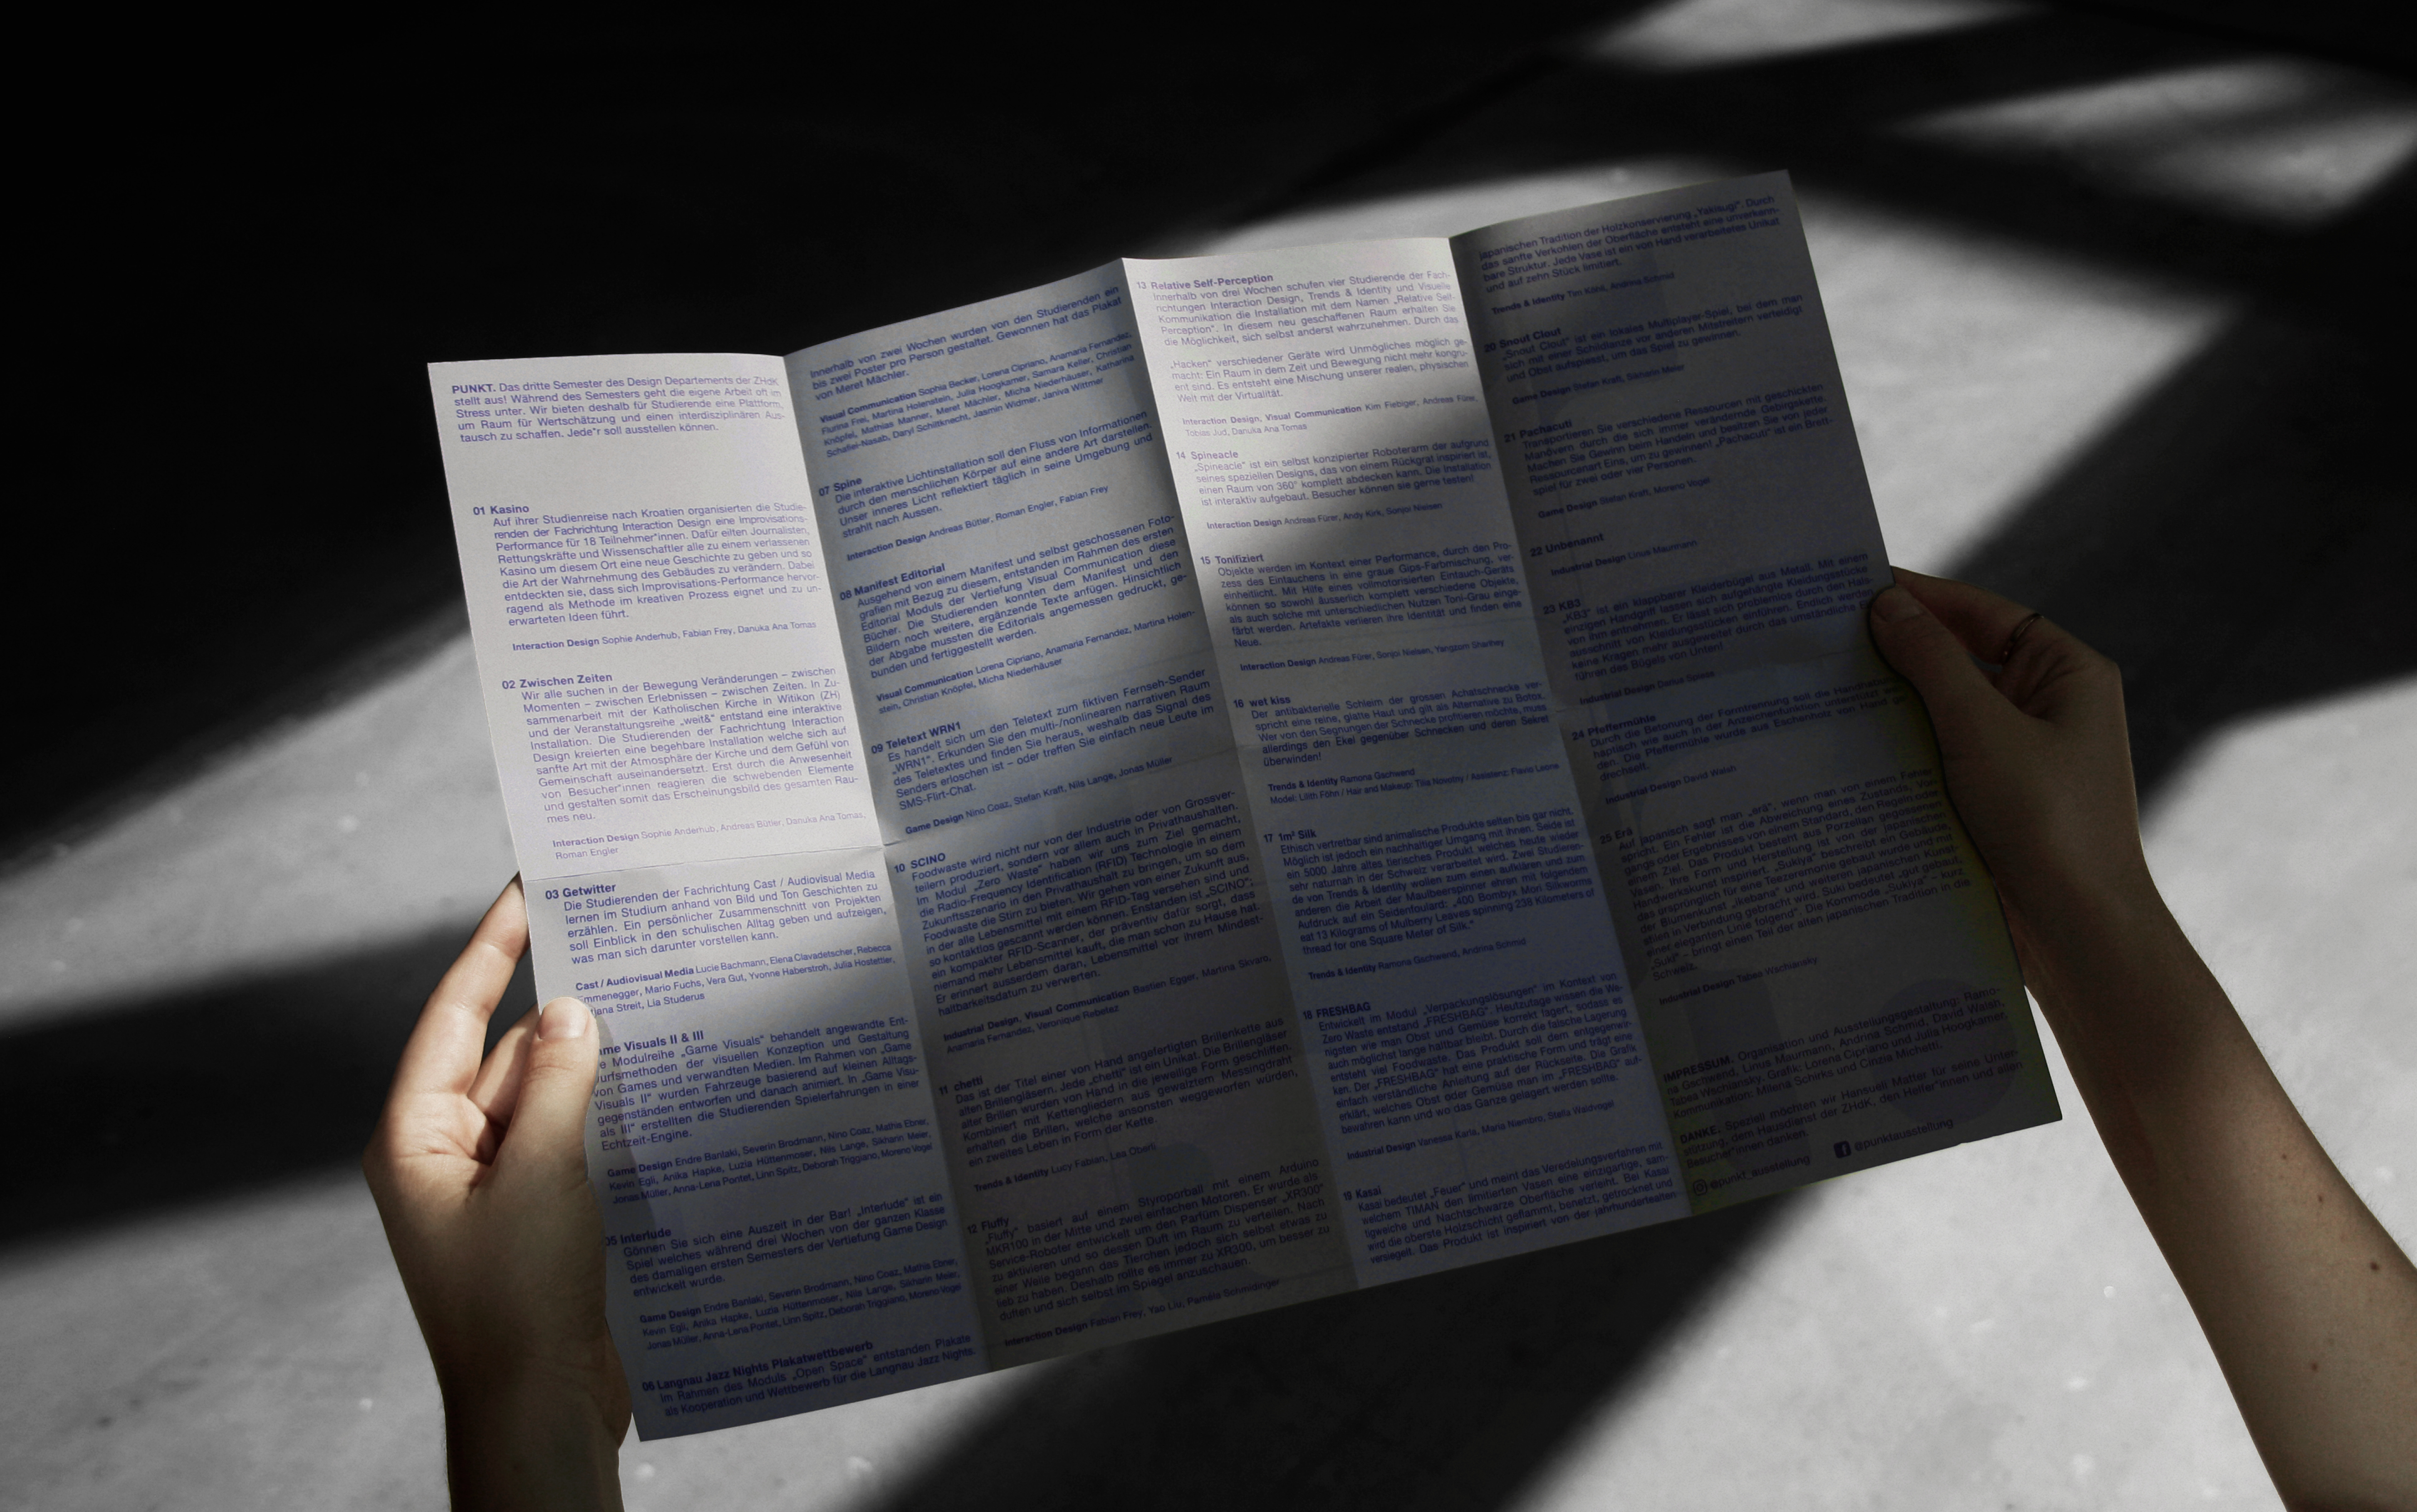 PUNKT. Das dritte Semester des Design Departements der ZHdK
stellt aus! Während des Semesters geht die eigene Arbeit oft im
Stress unter. Wir bieten deshalb für Studierende eine Plattform,
um Raum für Wertschätzung und einen interdisziplinären Aus-
tausch zu schaffen. Jede*r soll ausstellen können.
01 Kasino
Auf ihrer Studienreise nach Kroatien organisierten die Studie-
renden der Fachrichtung Interaction Design eine Improvisations-
Performance für 18 Teilnehmer*innen. Dafür eilten Journalisten,
Rettungskräfte und Wissenschaftler alle zu einem verlassenen
Kasino um diesem Ort eine neue Geschichte zu geben und so
die Art der Wahrnehmung des Gebäudes zu verändern. Dabei
entdeckten sie, dass sich Improvisations-Performance hervor-
ragend als Methode im kreativen Prozess eignet und zu un-
erwarteten Ideen führt.
Interaction Design Sophie Anderhub, Fabian Frey, Danuka Ana Tomas
02 Zwischen Zeiten
Wir alle suchen in der Bewegung Veränderungen – zwischen
Momenten – zwischen Erlebnissen – zwischen Zeiten. In Zu-
sammenarbeit mit der Katholischen Kirche in Witikon (ZH)
und der Veranstaltungsreihe „weit&“ entstand eine interaktive
Installation. Die Studierenden der Fachrichtung Interaction
Design kreierten eine begehbare Installation welche sich auf
sanfte Art mit der Atmosphäre der Kirche und dem Gefühl von
Gemeinschaft auseinandersetzt. Erst durch die Anwesenheit
von Besucher*innen reagieren die schwebenden Elemente
und gestalten somit das Erscheinungsbild des gesamten Rau-
mes neu.
Interaction Design Sophie Anderhub, Andreas Bütler, Danuka Ana Tomas,
Roman Engler
03 Getwitter
Die Studierenden der Fachrichtung Cast / Audiovisual Media
lernen im Studium anhand von Bild und Ton Geschichten zu
erzählen. Ein persönlicher Zusammenschnitt von Projekten
soll Einblick in den schulischen Alltag geben und aufzeigen,
was man sich darunter vorstellen kann.
Cast / Audiovisual Media Lucie Bachmann, Elena Clavadetscher, Rebecca
Emmenegger, Mario Fuchs, Vera Gut, Yvonne Haberstroh, Julia Hostettler,
Streit, Lia Studerus
me Visuals II & III
e Modulreihe „Game Visuals“ behandelt angewandte Ent-
urfsmethoden der visuellen Konzeption und Gestaltung
von Games und verwandten Medien. Im Rahmen von „Game
Visuals II“ wurden Fahrzeuge basierend auf kleinen Alltags-
gegenständen entworfen und danach animiert. In „Game Visu-
als III“ erstellten die Studierenden Spielerfahrungen in einer
Echtzeit-Engine.
Game Design Endre Banlaki, Severin Brodmann, Nino Coaz, Mathis Ebner,
Kevin Egli, Anika Hapke, Luzia Hüttenmoser, Nils Lange, Sikharin Meier,
Jonas Müller, Anna-Lena Pontet, Linn Spitz, Deborah Triggiano, Moreno Vogel
05 Interlude
Gönnen Sie sich eine Auszeit in der Bar! „Interlude“ ist ein
Spiel welches während drei Wochen von der ganzen Klasse
des damaligen ersten Semesters der Vertiefung Game Design
entwickelt wurde.
Game Design Endre Banlaki, Severin Brodmann, Nino Coaz, Mathis Ebner,
Kevin Egli, Anika Hapke, Luzia Hüttenmoser, Nils Lange, Sikharin Meier,
Jonas Müller, Anna-Lena Pontet, Linn Spitz, Deborah Triggiano, Moreno Vogel
06 Langnau Jazz Nights Plakatwettbewerb
Im Rahmen des Moduls „Open Space“ entstanden Plakate
als Kooperation und Wettbewerb für die Langnau Jazz Nights.
Innerhalb von zwei Wochen wurden von den Studierenden ein
bis zwei Poster pro Person gestaltet. Gewonnen hat das Plakat
von Meret Mächler.
Visual Communication Sophia Becker, Lorena Cipriano, Anamaria Fernandez,
Flurina Frei, Martina Holenstein, Julia Hoogkamer, Samara Keller, Christian
Knöpfel, Mathias Manner, Meret Mächler, Micha Niederhäuser, Katharina
Schafiei-Nasab, Daryl Schiltknecht, Jasmin Widmer, Janiva Wittmer
07 Spine
Die interaktive Lichtinstallation soll den Fluss von Informationen
durch den menschlichen Körper auf eine andere Art darstellen.
Unser inneres Licht reflektiert täglich in seine Umgebung und
strahlt nach Aussen.
Interaction Design Andreas Bütler, Roman Engler, Fabian Frey
08 Manifest Editorial
Ausgehend von einem Manifest und selbst geschossenen Foto-
grafien mit Bezug zu diesem, entstanden im Rahmen des ersten
Editorial Moduls der Vertiefung Visual Communication diese
Bücher. Die Studierenden konnten dem Manifest und den
Bildern noch weitere, ergänzende Texte anfügen. Hinsichtlich
der Abgabe mussten die Editorials angemessen gedruckt, ge-
bunden und fertiggestellt werden.
Visual Communication Lorena Cipriano, Anamaria Fernandez, Martina Holen-
stein, Christian Knöpfel, Micha Niederhäuser
09 Teletext WRN1
Es handelt sich um den Teletext zum fiktiven Fernseh-Sender
„WRN1“. Erkunden Sie den multi-/nonlinearen narrativen Raum
des Teletextes und finden Sie heraus, weshalb das Signal des
Senders erloschen ist – oder treffen Sie einfach neue Leute im
SMS-Flirt-Chat.
Game Design Nino Coaz, Stefan Kraft, Nils Lange, Jonas Müller
10 SCINO
Foodwaste wird nicht nur von der Industrie oder von Grossver-
teilern produziert, sondern vor allem auch in Privathaushalten.
Im Modul „Zero Waste“ haben wir uns zum Ziel gemacht,
die Radio-Frequency Identification (RFID) Technologie in einem
Zukunftsszenario in den Privathaushalt zu bringen, um so dem
Foodwaste die Stirn zu bieten. Wir gehen von einer Zukunft aus,
in der alle Lebensmittel mit einem RFID-Tag versehen sind und
so kontaktlos gescannt werden können. Enstanden ist „SCINO“:
ein kompakter RFID-Scanner, der präventiv dafür sorgt, dass
niemand mehr Lebensmittel kauft, die man schon zu Hause hat.
Er erinnert ausserdem daran, Lebensmittel vor ihrem Mindest-
haltbarkeitsdatum zu verwerten.
Industrial Design, Visual Communication Bastien Egger, Martina Skvaro,
Anamaria Fernandez, Veronique Rebetez
11 chetti
Das ist der Titel einer von Hand angefertigten Brillenkette aus
alten Brillengläsern. Jede „chetti“ ist ein Unikat. Die Brillengläser
alter Brillen wurden von Hand in die jeweilige Form geschliffen.
Kombiniert mit Kettengliedern aus gewalztem Messingdraht
erhalten die Brillen, welche ansonsten weggeworfen würden,
ein zweites Leben in Form der Kette.
Trends & Identity Lucy Fabian, Lea Oberli
12 Fluffy
„Fluffy“ basiert auf einem Styroporball mit einem Arduino
MKR100 in der Mitte und zwei einfachen Motoren. Er wurde als
Service-Roboter entwickelt um den Parfüm Dispenser „XR300“
zu aktivieren und so dessen Duft im Raum zu verteilen. Nach
einer Weile begann das Tierchen jedoch sich selbst etwas zu
lieb zu haben. Deshalb rollte es immer zu XR300, um besser zu
duften und sich selbst im Spiegel anzuschauen.
Interaction Design Fabian Frey, Yao Liu, Paméla Schmidinger
13 Relative Self-Perception
Innerhalb von drei Wochen schufen vier Studierende der Fach-
richtungen Interaction Design, Trends & Identity und Visuelle
Kommunikation die Installation mit dem Namen „Relative Self-
Perception“. In diesem neu geschaffenen Raum erhalten Sie
die Möglichkeit, sich selbst anderst wahrzunehmen. Durch das
„Hacken“ verschiedener Geräte wird Unmögliches möglich ge-
macht: Ein Raum in dem Zeit und Bewegung nicht mehr kongru-
ent sind. Es entsteht eine Mischung unserer realen, physischen
Welt mit der Virtualität.
Interaction Design, Visual Communication Kim Fiebiger, Andreas Fürer,
Tobias Jud, Danuka Ana Tomas
14 Spineacle
„Spineacle“ ist ein selbst konzipierter Roboterarm der aufgrund
seines speziellen Designs, das von einem Rückgrat inspiriert ist,
einen Raum von 360° komplett abdecken kann. Die Installation
ist interaktiv aufgebaut. Besucher können sie gerne testen!
Interaction Design Andreas Fürer, Andy Kirk, Sonjoi Nielsen
15 Tonifiziert
Objekte werden im Kontext einer Performance, durch den Pro-
zess des Eintauchens in eine graue Gips-Farbmischung, ver-
einheitlicht. Mit Hilfe eines vollmotorisierten Eintauch-Geräts
können so sowohl äusserlich komplett verschiedene Objekte,
als auch solche mit unterschiedlichen Nutzen Toni-Grau einge-
färbt werden. Artefakte verlieren ihre Identität und finden eine
Neue.
Interaction Design Andreas Fürer, Sonjoi Nielsen, Yangzom Sharlhey
16 wet kiss
Der antibakterielle Schleim der grossen Achatschnecke ver-
spricht eine reine, glatte Haut und gilt als Alternative zu Botox.
Wer von den Segnungen der Schnecke profitieren möchte, muss
allerdings den Ekel gegenüber Schnecken und deren Sekret
überwinden!
Trends & Identity Ramona Gschwend
Model: Lilith Föhn / Hair and Makeup: Tiia Novotny / Assistenz: Flavia Leone
17 1m² Silk
Ethisch vertretbar sind animalische Produkte selten bis gar nicht.
Möglich ist jedoch ein nachhaltiger Umgang mit ihnen. Seide ist
ein 5000 Jahre altes tierisches Produkt welches heute wieder
sehr naturnah in der Schweiz verarbeitet wird. Zwei Studieren-
de von Trends & Identity wollen zum einen aufklären und zum
anderen die Arbeit der Maulbeerspinner ehren mit folgendem
Aufdruck auf ein Seidenfoulard: „400 Bombyx Mori Silkworms
eat 13 Kilograms of Mulberry Leaves spinning 238 Kilometers of
thread for one Square Meter of Silk.“
Trends & Identity Ramona Gschwend, Andrina Schmid
18 FRESHBAG
Entwickelt im Modul „Verpackungslösungen“ im Kontext von
Zero Waste entstand „FRESHBAG“. Heutzutage wissen die We-
nigsten wie man Obst und Gemüse korrekt lagert, sodass es
auch möglichst lange haltbar bleibt. Durch die falsche Lagerung
entsteht viel Foodwaste. Das Produkt soll dem entgegenwir-
ken. Der „FRESHBAG“ hat eine praktische Form und trägt eine
einfach verständliche Anleitung auf der Rückseite. Die Grafik
erklärt, welches Obst oder Gemüse man im „FRESHBAG“ auf-
bewahren kann und wo das Ganze gelagert werden sollte.
Industrial Design Vanessa Karis, Maria Niembro, Stella Waldvogel
19 Kasai
Kasai bedeutet „Feuer“ und meint das Veredelungsverfahren mit
welchem TIMAN den limitierten Vasen eine einzigartige, sam-
tigweiche und Nachtschwarze Oberfläche verleiht. Bei Kasai
wird die oberste Holzschicht geflammt, benetzt, getrocknet und
versiegelt. Das Produkt ist inspiriert von der jahrhundertealten
japanischen Tradition der Holzkonservierung „Yakisugi“. Durch
das sanfte Verkohlen der Oberfläche entsteht eine unverkenn-
bare Struktur. Jede Vase ist ein von Hand verarbeitetes Unikat
und auf zehn Stück limitiert.
Trends & Identity Tim Kähli, Andrina Schmid
20 Snout Clout
„Snout Clout“ ist ein lokales Multiplayer-Spiel, bei dem man
sich mit einer Schildlanze vor anderen Mitstreitern verteidigt
und Obst aufspiesst, um das Spiel zu gewinnen.
Game Design Stefan Kraft, Sikharin Meier
21 Pachacuti
Transportieren Sie verschiedene Ressourcen mit geschickten
Manövern durch die sich immer verändernde Gebirgskette.
Machen Sie Gewinn beim Handeln und besitzen Sie von jeder
Ressourcenart Eins, um zu gewinnen! „Pachacuti“ ist ein Brett-
spiel für zwei oder vier Personen.
Game Design Stefan Kraft, Moreno Vogel
22 Unbenannt
Industrial Design Linus Maurmann
23 KB3
„KB3“ ist ein klappbarer Kleiderbügel aus Metall. Mit einem
einzigen Handgriff lassen sich aufgehängte Kleidungsstücke
von ihm entnehmen. Er lässt sich problemlos durch den Hals-
ausschnitt von Kleidungsstücken einführen. Endlich werden
keine Kragen mehr ausgeweitet durch das umständliche
führen des Bügels von Unten!
Industrial Design Darius Spiess
24 Pfeffermühle
Durch die Betonung der Formtrennung soll die Handhabung
haptisch wie auch in der Anzeichenfunktion unterstützt
den. Die Pfeffermühle wurde aus Eschenholz von Hand ge-
drechselt.
Industrial Design David Walsh
25 Erā
Auf Japanisch sagt man „erā“, wenn man von einem Fehler
spricht. Ein Fehler ist die Abweichung eines Zustands, Vor-
gangs oder Ergebnisses von einem Standard, den Regeln oder
einem Ziel. Das Produkt besteht aus Porzellan gegossenen
Vasen. Ihre Form und Herstellung ist von der japanischen
Handwerkskunst inspiriert. „Sukiya“ beschreibt ein Gebäude,
das ursprünglich für eine Teezeremonie gebaut wurde und mit
der Blumenkunst „Ikebana“ und weiteren japanischen Kunst-
stilen in Verbindung gebracht wird. Suki bedeutet „gut gebaut,
einer eleganten Linie folgend“. Die Kommode „Sukiya“ – kurz
„Suki“ – bringt einen Teil der alten japanischen Tradition in die
Schweiz.
Industrial Design Tabea Wschiansky
IMPRESSUM. Organisation und Ausstellungsgestaltung: Ramo-
na Gschwend, Linus Maurmann, Andrina Schmid, David Walsh,
Tabea Wschiansky, Grafik: Lorena Cipriano und Julia Hoogkamer,
Kommunikation: Milena Schirks und Cinzia Michetti.
DANKE. Speziell möchten wir Hansueli Matter für seine Unter-
stützung, dem Hausdienst der ZHdK, den Helfer*innen und allen
Besucher*innen danken.
@punkt_ausstellung
@punktausstellung